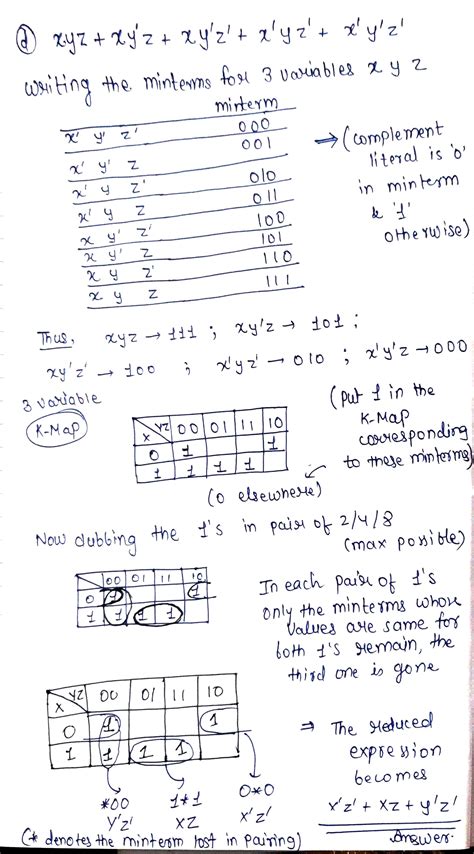 (d) xyz + xy'z + xy'z' + x'yz' + x'y'z'
writing the minterms for 3 variables x y z
minterm
x' y' z' 000
x' y' z 001
x' y z' 010
x' y z 011
x y' z' 100
x y' z 101
x y z' 110
x y z 111
⇒ (complement
literal is '0'
in minterm
& '1'
otherwise)
Thus, xyz → 111 ; xy'z → 101 ;
xy'z' → 100 ; x'yz' → 010 ; x'y'z → 000
3 variable
K-Map
x yz 00 01 11 10
0 1 1
1 1 1 1
(put 1 in the
K-Map
corresponding
to these minterms)
(0 elsewhere)
Now clubbing the 1's in pair of 2/4/8
(max possible)
00 01 11 10
0 1 1
1 1 1 1
In each pair of 1's
only the minterms whose
values are same for
both 1's remain, the
third one is gone
x yz 00 01 11 10
0 1 1
1 1 1 1
*00 1*1 0*0
y'z' xz x'z'
⇒ The reduced
expression
becomes
x'z' + xz + y'z'
Answer.
(* denotes the minterm lost in pairing)